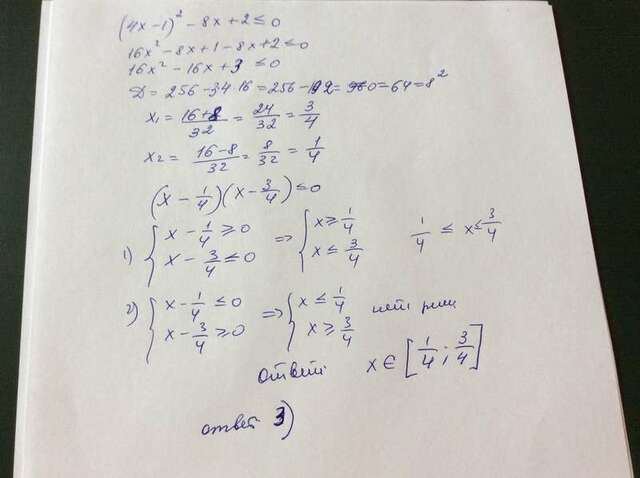 (4x-1)² - 8x + 2 ≤ 0
16x² - 8x + 1 - 8x + 2 ≤ 0
16x² - 16x + 3 ≤ 0
D = 256 - 34·16 = 256 - 192 = = 64 = 8²
x₁ = (16+8)/32 = 24/32 = 3/4
x₂ = (16-8)/32 = 8/32 = 1/4
(x - 1/4)(x - 3/4) ≤ 0
1) { x - 1/4 ≥ 0 => { x ≥ 1/4
x - 3/4 ≤ 0 x ≤ 3/4 1/4 ≤ x ≤ 3/4
2) { x - 1/4 ≤ 0 => { x ≤ 1/4 нет реш
x - 3/4 ≥ 0 x ≥ 3/4
ответ x ∈ [1/4; 3/4]
ответ 3)